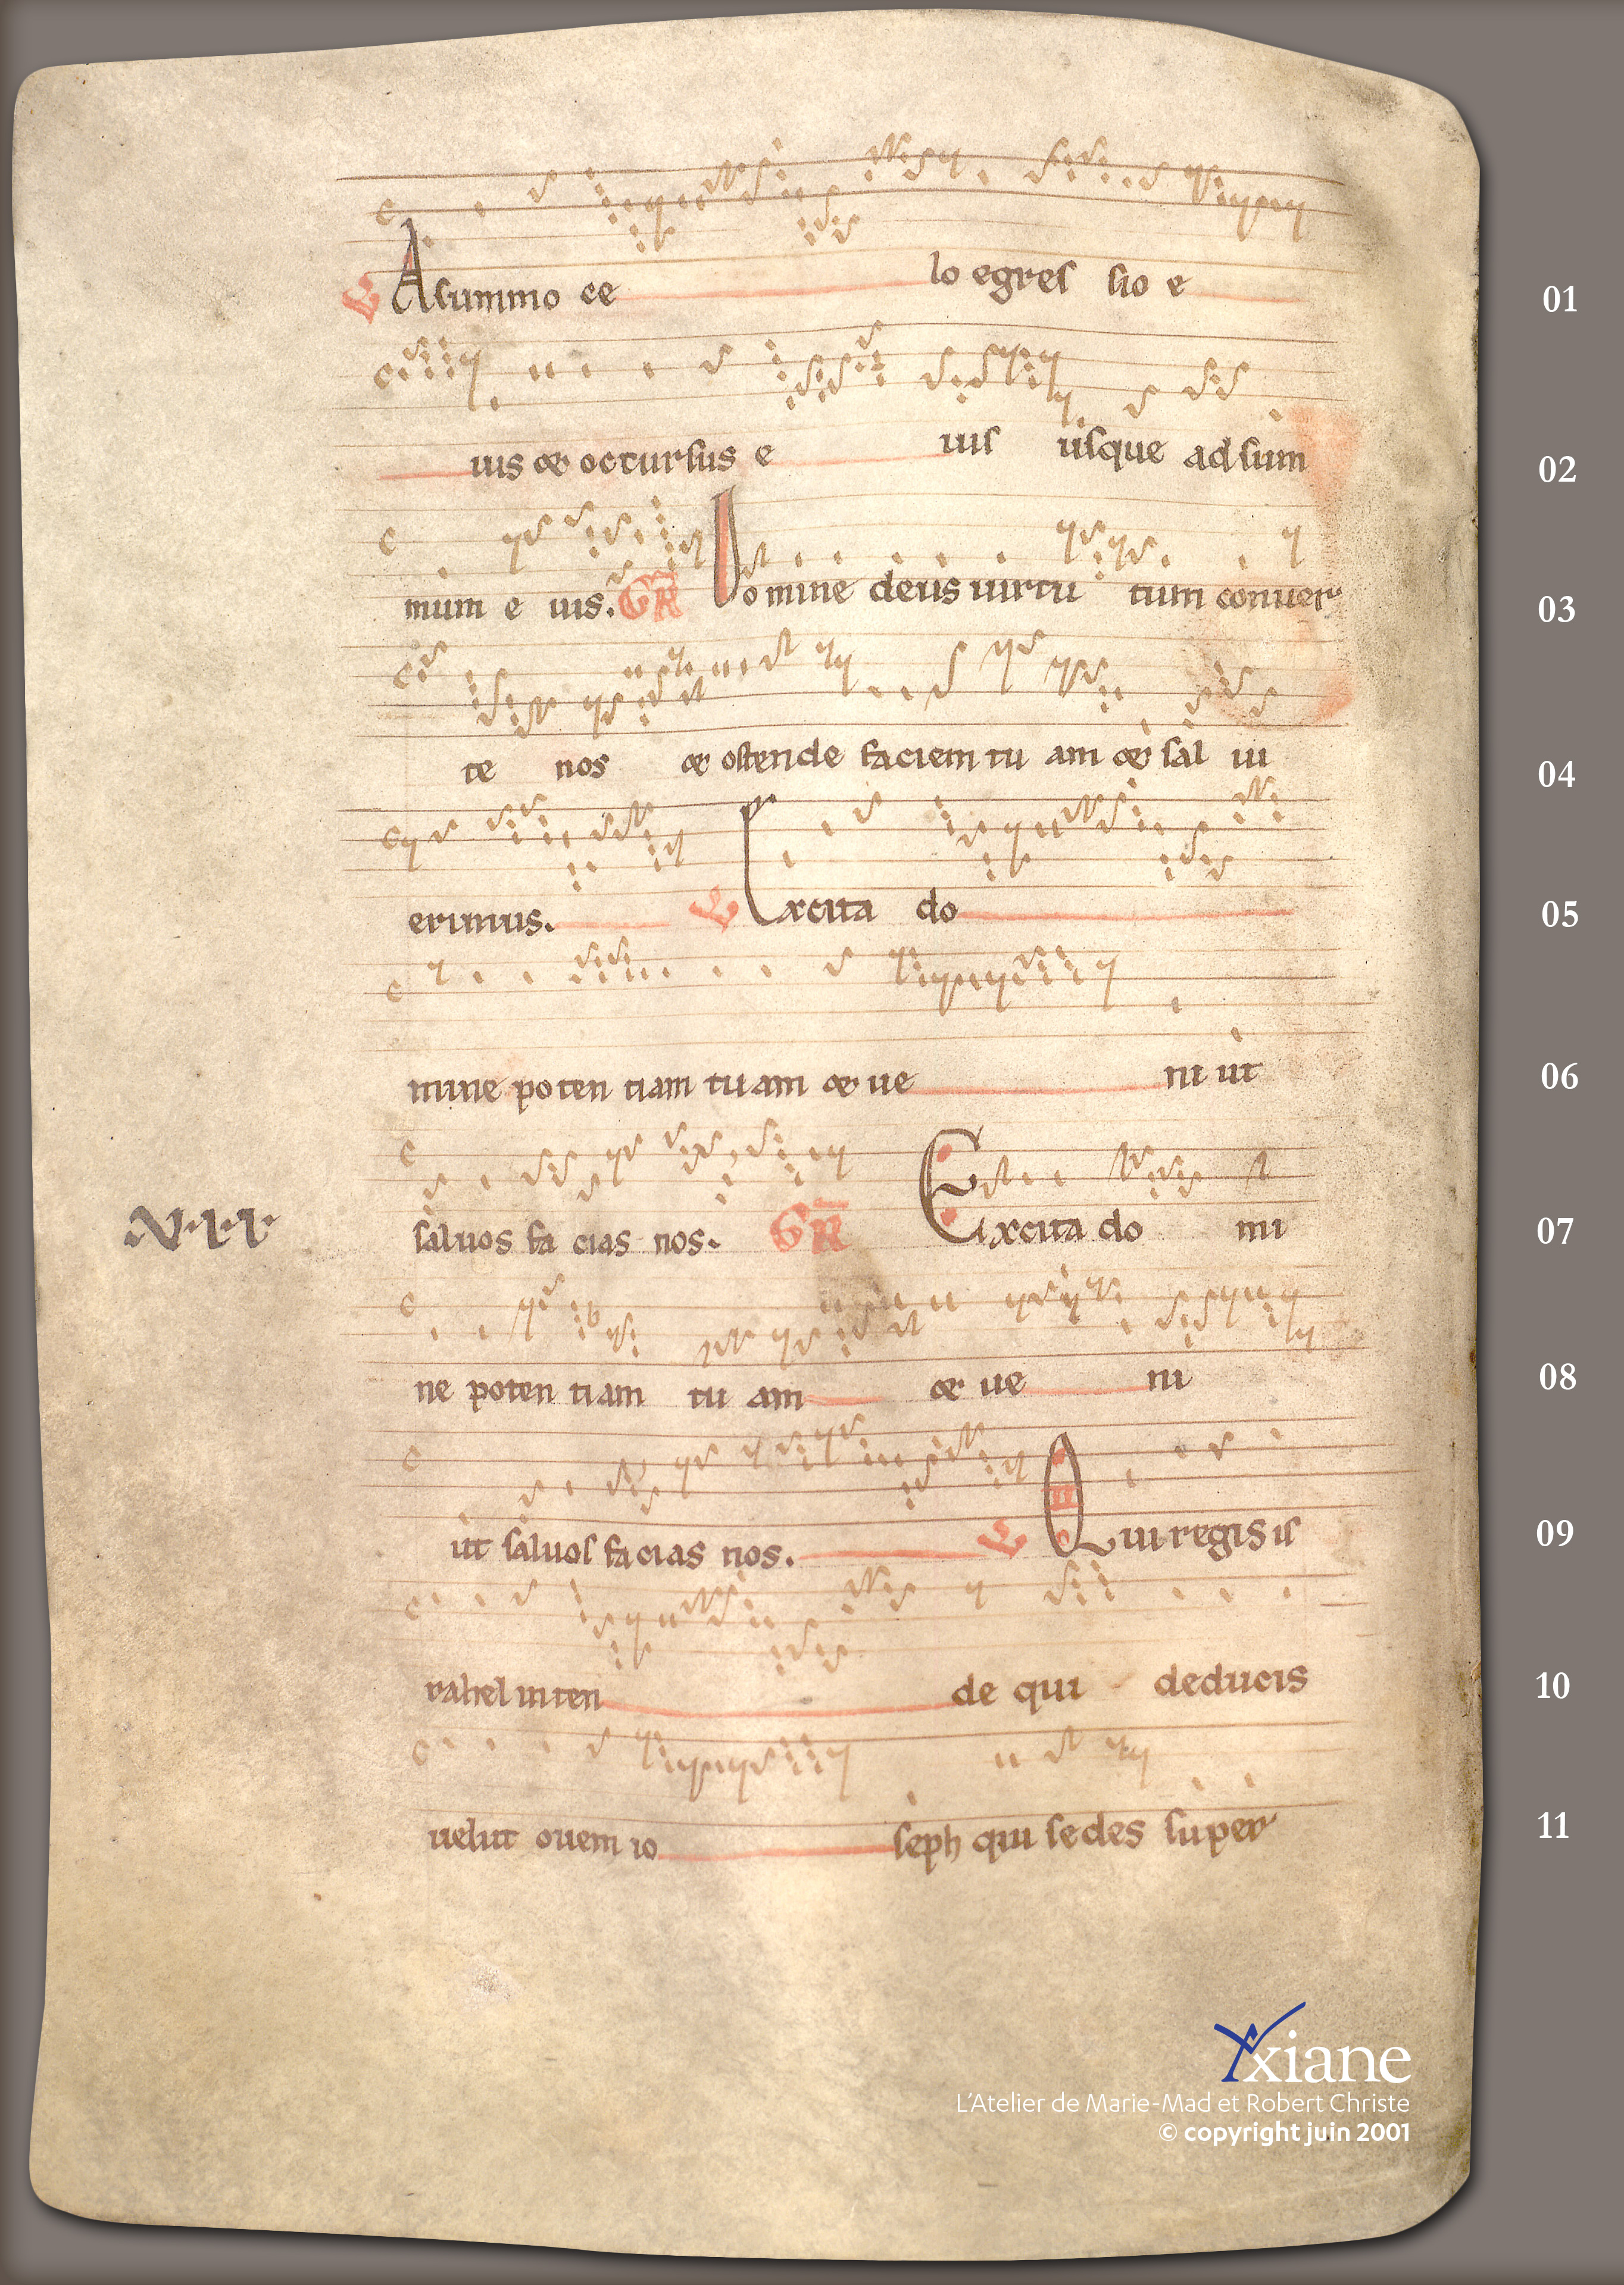 ℣ A summo ce lo egres sio e 01
uis & occursus e uis usque ad sum 02
mum e uis. GR Domine deus uirtu tum conuer 03
te nos & ostende faciem tu am & sal ui 04
erimus. ℣ Excita do 05
mine poten tiam tuam & ue ni ut 06
saluos fa cias nos. GR Excita do mi 07
N·I·I·
ne poten tiam tu am & ue ni 08
ut saluos facias nos. ℣ Qui regis is 09
rahel inten de qui deducis 10
uelut ouem io seph qui sedes super 11
Yxiane
L'Atelier de Marie-Mad et Robert Christe
© copyright juin 2001